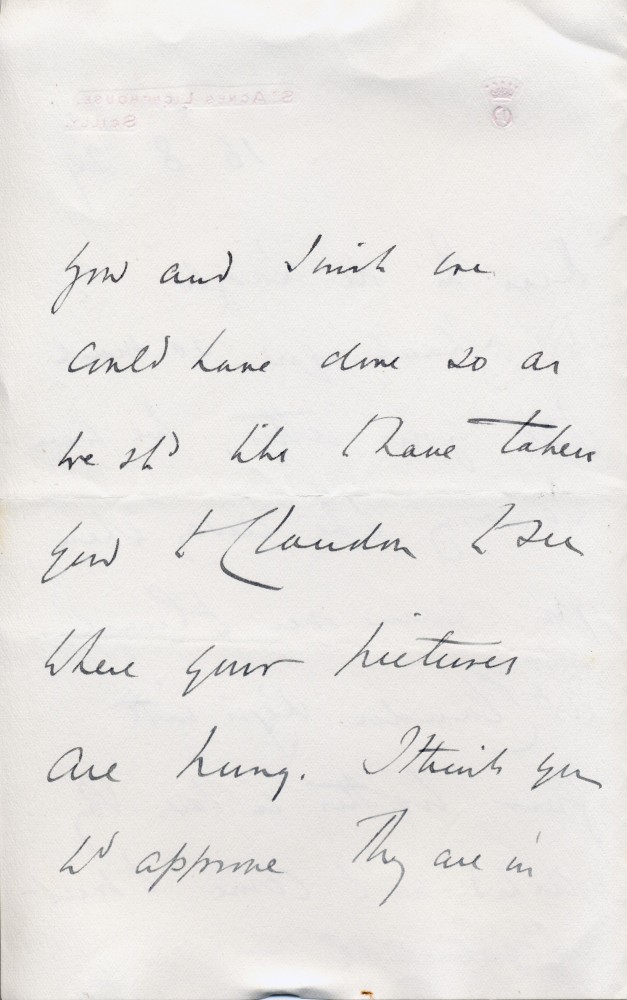 St AGNES LIGHTHOUSE.
SCILLY.
you and I wish we
could have done so as
we shd like to have taken
you to Clandon to see
where your pictures
are hung. I think you
wd approve They are in